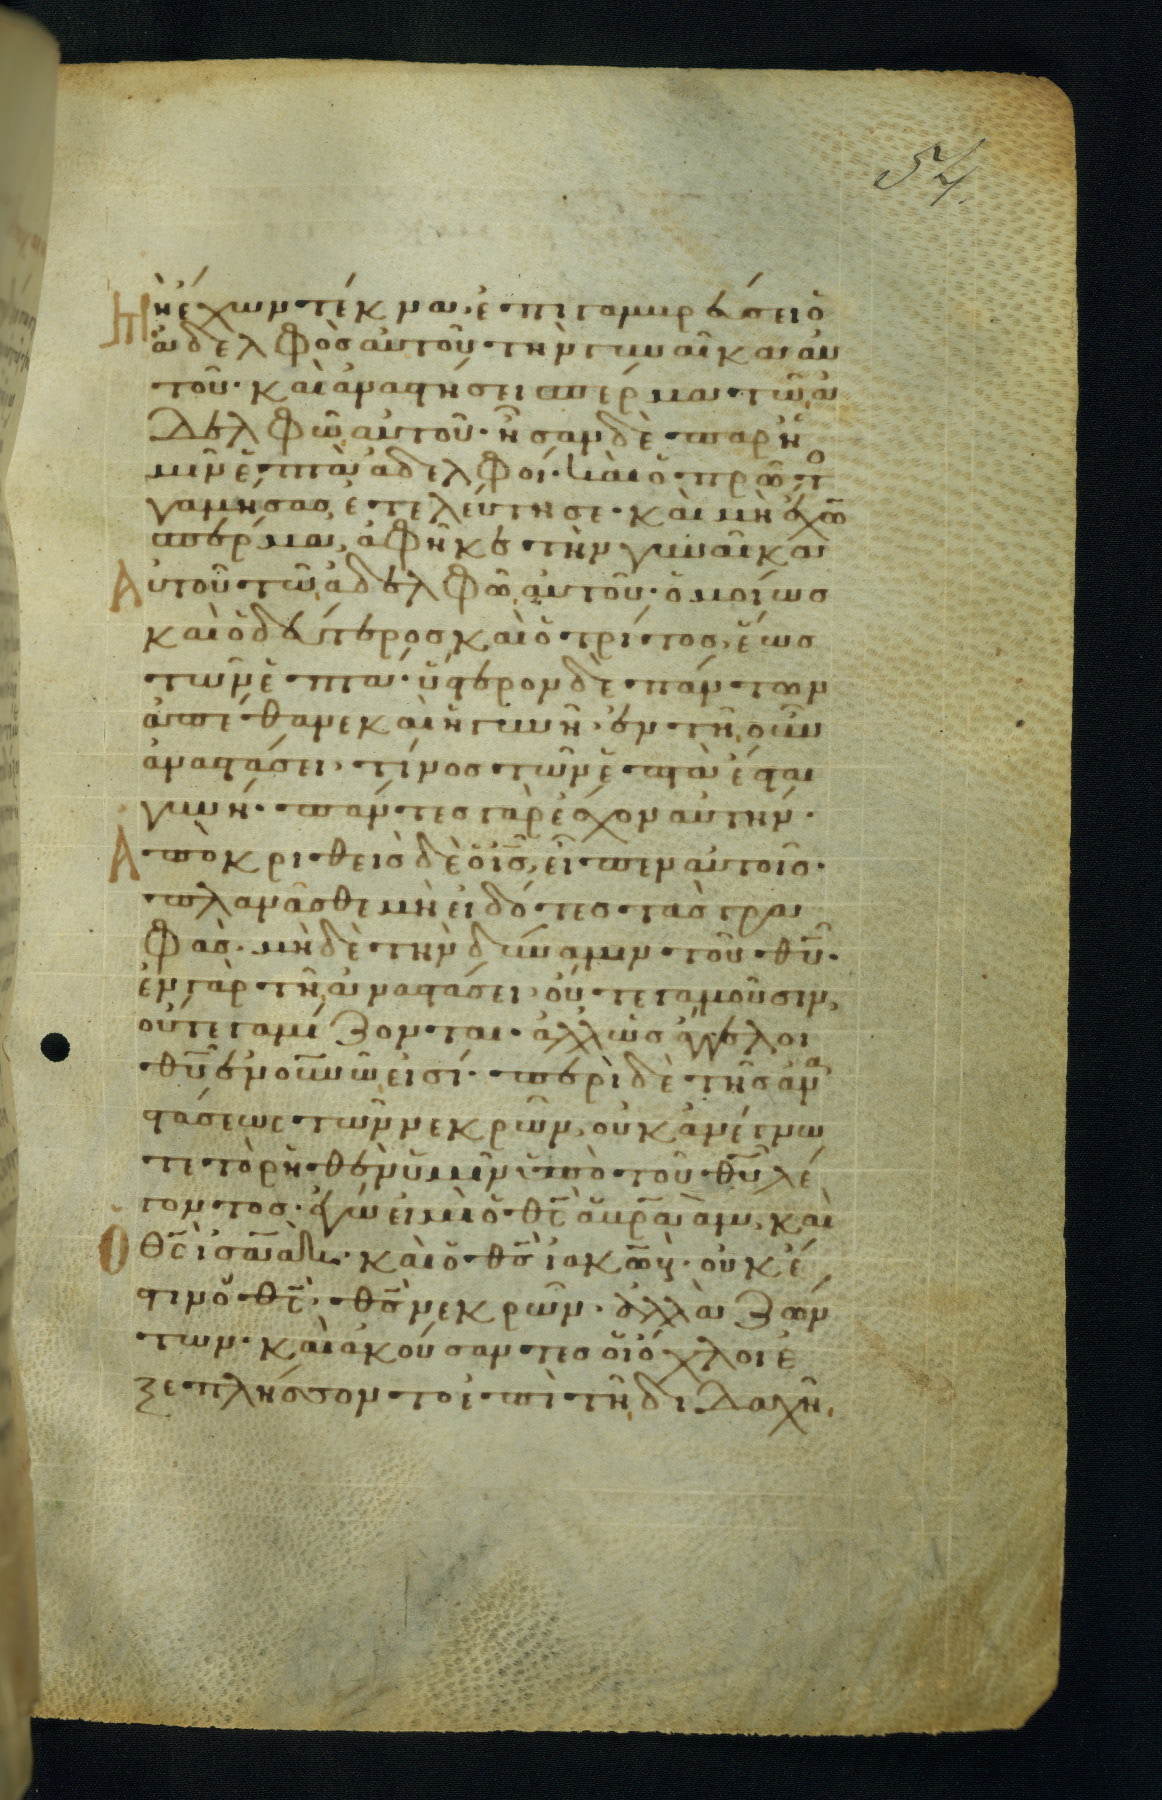 54.
μὴ ἔχων τέκνα· ἐπιγαμβρεύσει ὁ
ἀδελφὸς αὐτοῦ τὴν γυναῖκα αὐ
τοῦ· καὶ ἀναστήσει σπέρμα τῶ ἀ
δελφῶ αὐτοῦ· ἦσαν δὲ παρ' ἡ
μῖν ἑπτὰ ἀδελφοί· καὶ ὁ πρῶτο
γαμήσας, ἐτελεύτησε· καὶ μὴ ἔχω
σπέρμα, ἀφῆκε τὴν γυναῖκα
αὐτοῦ τῶ ἀδελφῶ αὐτοῦ· ὁμοίως
καὶ ὁ δεύτερος καὶ ὁ τρίτος, ἕως
τῶν ἑπτά· ὕστερον δὲ πάντων
ἀπέθανε καὶ ἡ γυνή· ἐν τῆ οὖν
ἀναστάσει· τίνος τῶν ἑπτὰ ἔσται
γυνή· πάντες γὰρ ἔσχον αὐτήν·
Ἀποκριθεὶς δὲ ὁ ις, εἶπεν αὐτοῖς·
πλανᾶσθε μὴ εἰδότες τὰς γρα
φάς· μηδὲ τὴν δύναμιν τοῦ θυ·
ἐν γὰρ τῆ ἀναστάσει οὔτε γαμοῦσιν,
οὔτε γαμίζονται· ἀλλ' ὡς ἄγγελοι
θυ ἐν οὐνω εἰσί· περὶ δὲ τῆς ἀνα
στάσεως τῶν νεκρῶν, οὐκ ἀνέγνω
τε τὸ ρηθὲν ὑμῖν ὑπὸ τοῦ θυ λέ
γοντος· ἐγώ εἰμι ὁ θς ἀβραάμ, καὶ
ὁ θς ἰσαάκ· καὶ ὁ θς ἰακώβ· οὐκ ἔ
στιν ὁ θς· θς νεκρῶν· ἀλλὰ ζών
των· καὶ ἀκούσαντες οἱ ὄχλοι ἐ
ξεπλήσσοντο ἐπὶ τῆ διδαχῆ